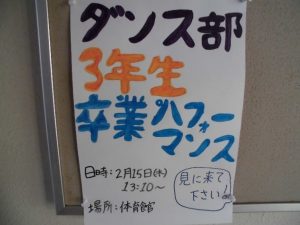 ダンス部
3年生
卒業パフォー
マンス
日時:2月15日(木)
13:10~
場所:体育館
見に来て
下さい